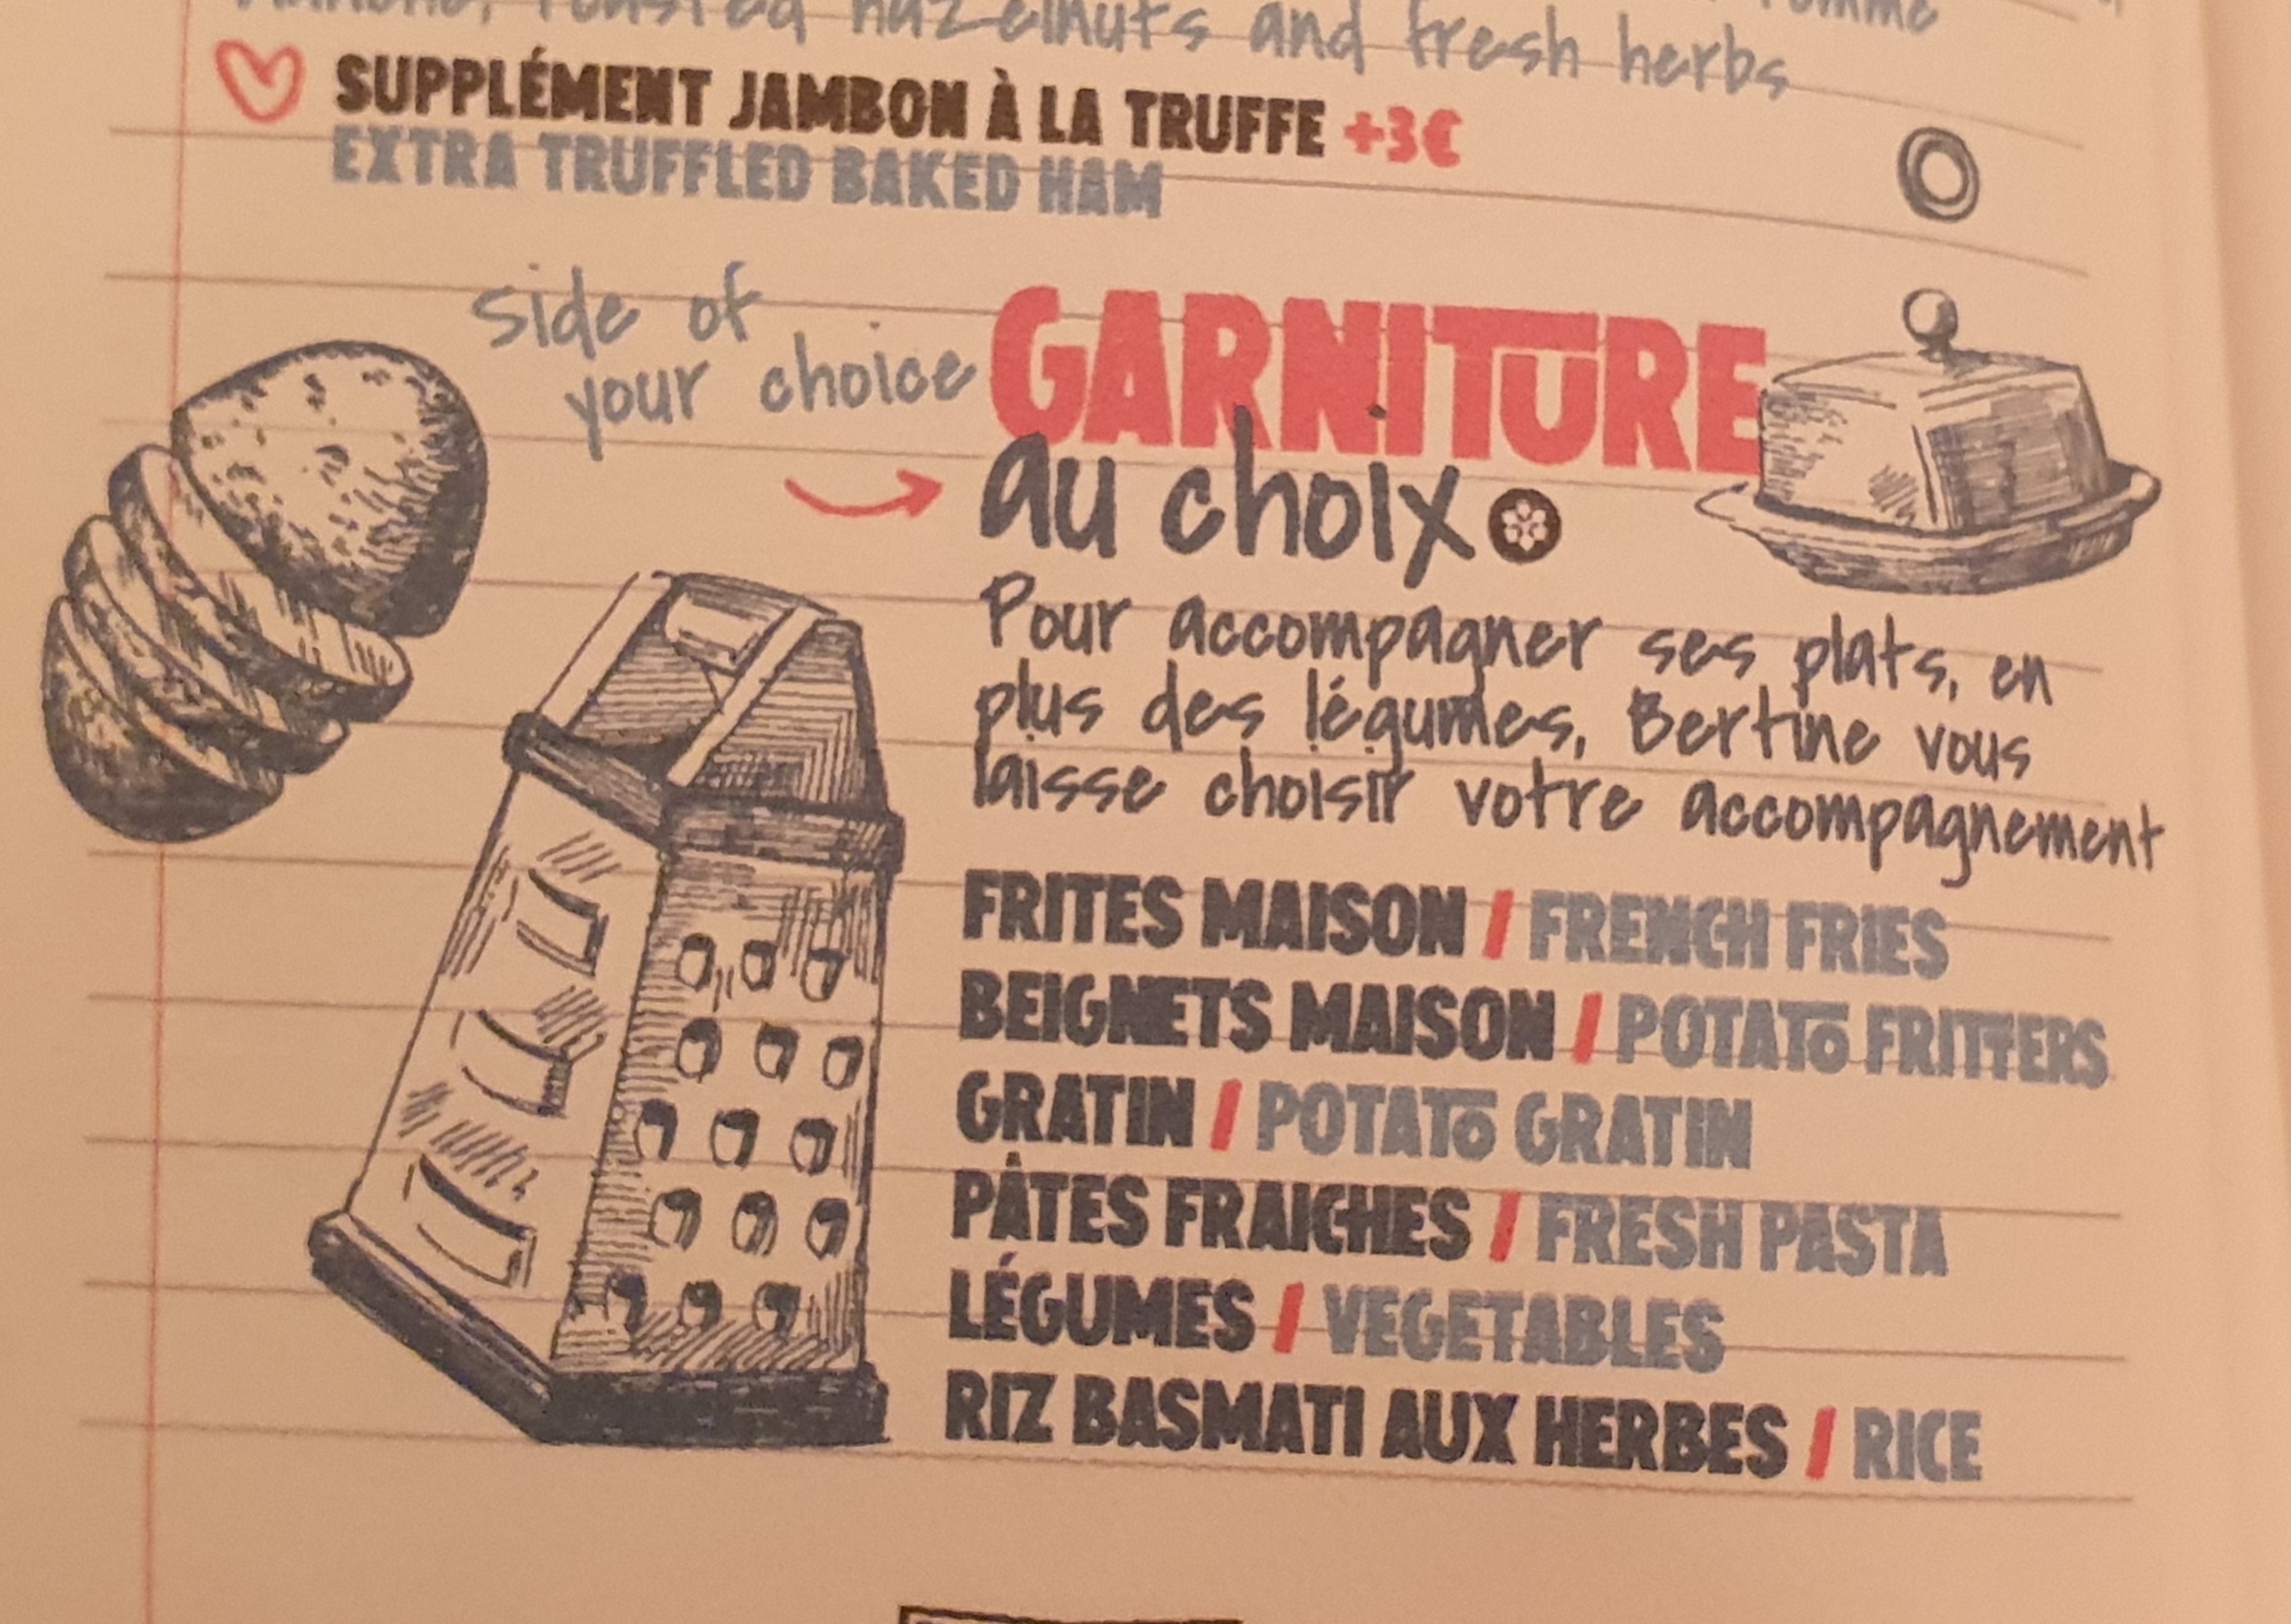 roasted hazelnuts and fresh herbs
SUPPLÉMENT JAMBON À LA TRUFFE +3€
EXTRA TRUFFLED BAKED HAM
side of
your choice
GARNITURE
au choix
Pour accompagner ses plats, en
plus des légumes, Bertine vous
laisse choisir votre accompagnement
FRITES MAISON / FRENCH FRIES
BEIGNETS MAISON / POTATO FRITTERS
GRATIN / POTATO GRATIN
PÂTES FRAICHES / FRESH PASTA
LÉGUMES / VEGETABLES
RIZ BASMATI AUX HERBES / RICE